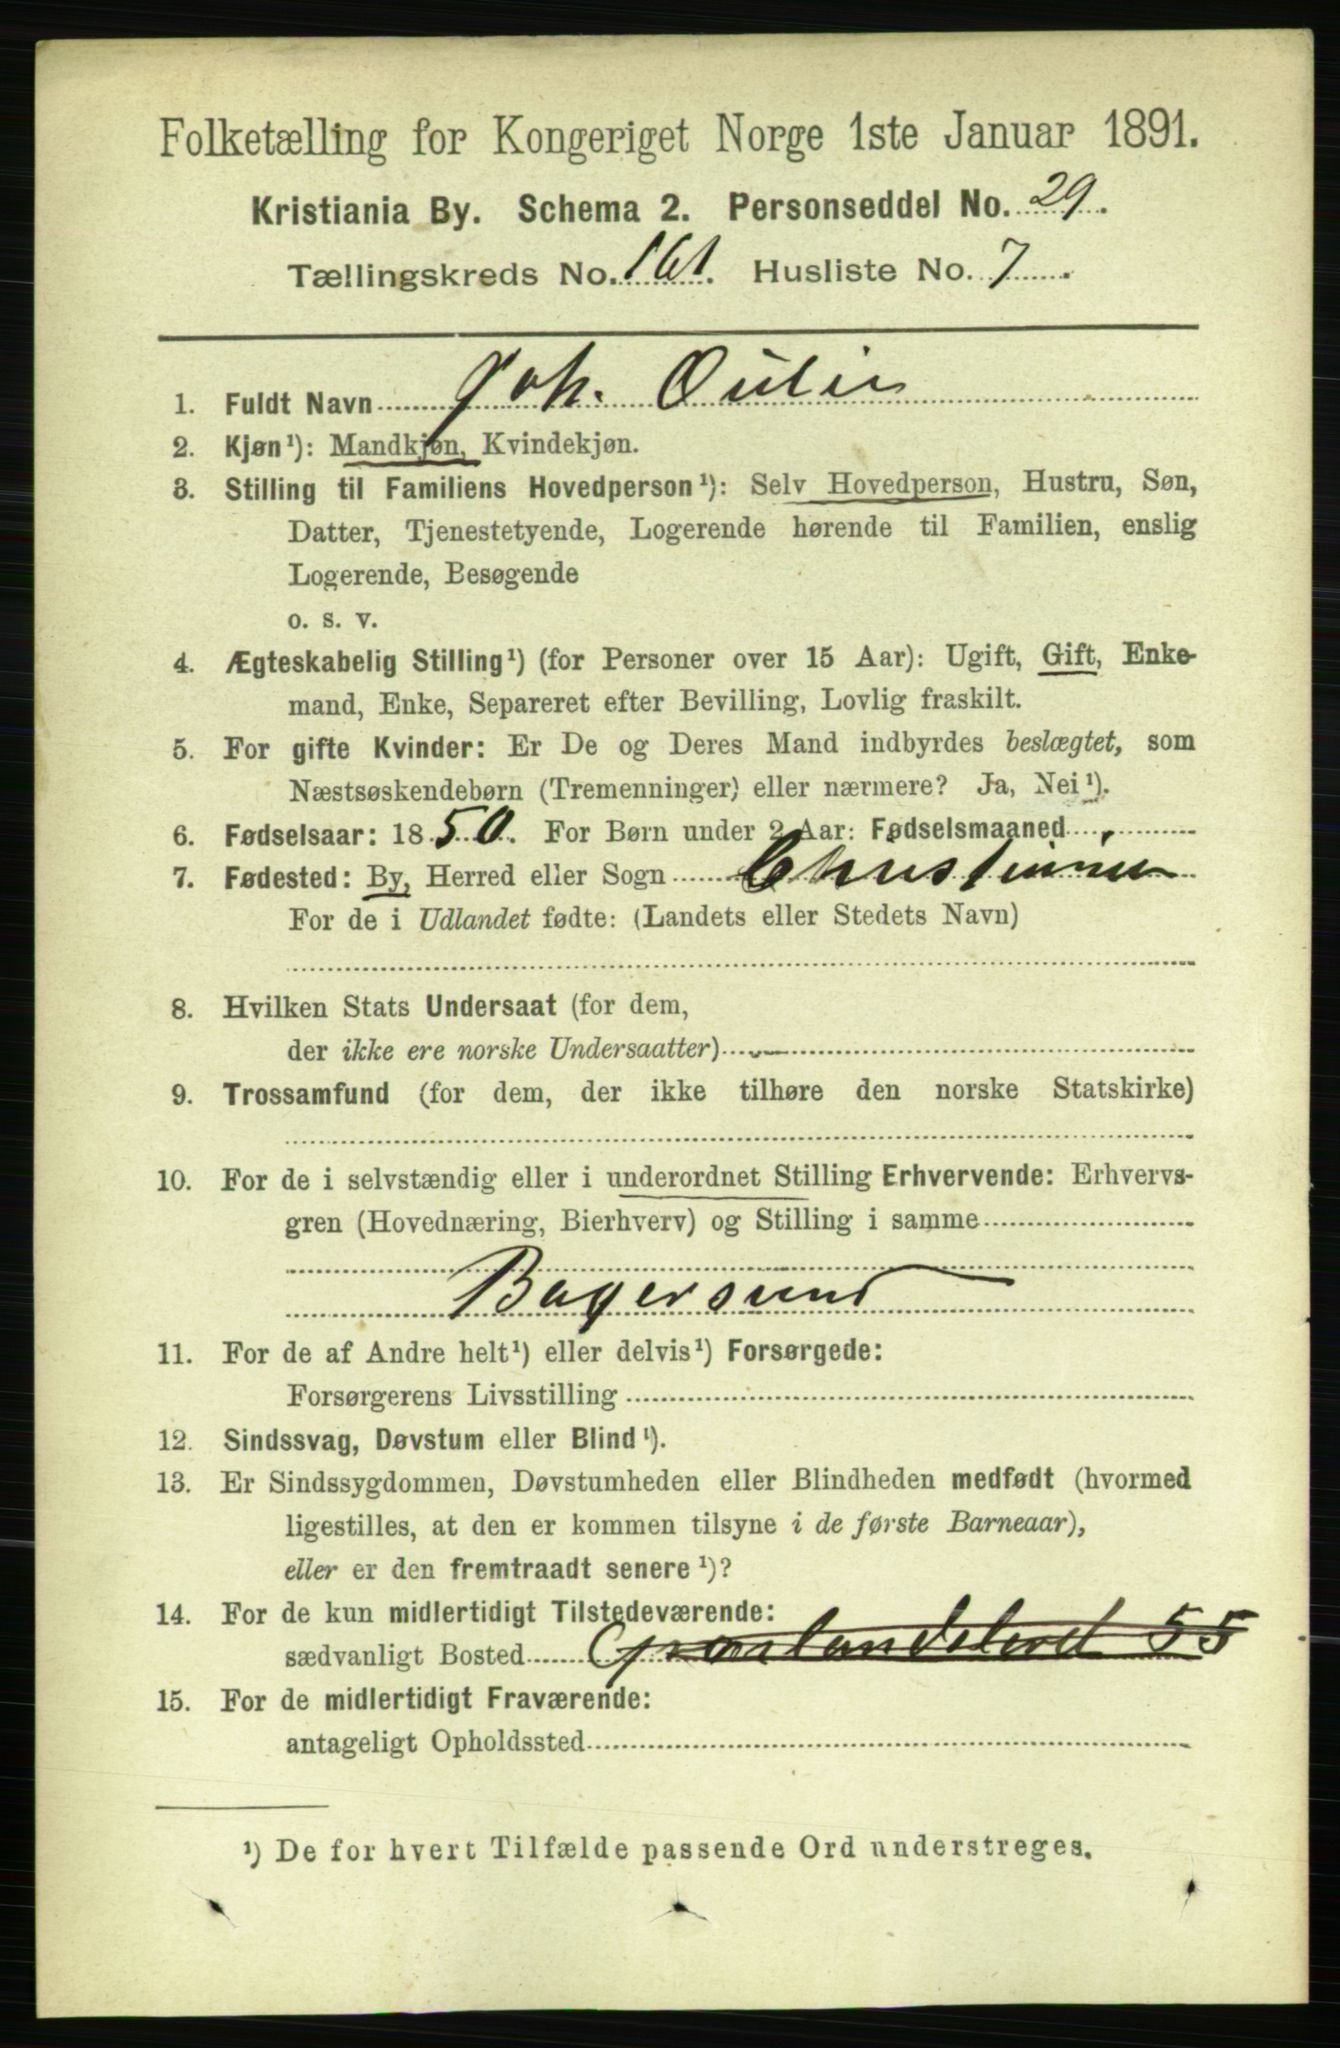 Folketælling for Kongeriget Norge 1ste Januar 1891.
Kristiania By. Schema 2. Personseddel No. 29.
Tællingskreds No. 161. Husliste No. 7.
1. Fuldt Navn Joh. Oulie
2. Kjøn¹): Mandkjøn, Kvindekjøn.
3. Stilling til Familiens Hovedperson¹): Selv Hovedperson, Hustru, Søn,
Datter, Tjenestetyende, Logerende hørende til Familien, enslig
Logerende, Besøgende
o. s. v.
4. Ægteskabelig Stilling¹) (for Personer over 15 Aar): Ugift, Gift, Enke-
mand, Enke, Separeret efter Bevilling, Lovlig fraskilt.
5. For gifte Kvinder: Er De og Deres Mand indbyrdes beslægtet, som
Næstsøskendebørn (Tremenninger) eller nærmere? Ja, Nei¹).
6. Fødselsaar: 1850. For Børn under 2 Aar: Fødselsmaaned
7. Fødested: By, Herred eller Sogn Christiania
For de i Udlandet fødte: (Landets eller Stedets Navn)
8. Hvilken Stats Undersaat (for dem,
der ikke ere norske Undersaatter)
9. Trossamfund (for dem, der ikke tilhøre den norske Statskirke)
10. For de i selvstændig eller i underordnet Stilling Erhvervende: Erhvervs-
gren (Hovednæring, Bierhverv) og Stilling i samme
Bagersvend
11. For de af Andre helt¹) eller delvis¹) Forsørgede:
Forsørgerens Livsstilling
12. Sindssvag, Døvstum eller Blind¹).
13. Er Sindssygdommen, Døvstumheden eller Blindheden medfødt (hvormed
ligestilles, at den er kommen tilsyne i de første Barneaar),
eller er den fremtraadt senere¹)?
14. For de kun midlertidigt Tilstedeværende:
sædvanligt Bosted Grønlandsleret 55
15. For de midlertidigt Fraværende:
antageligt Opholdssted
¹) De for hvert Tilfælde passende Ord understreges.